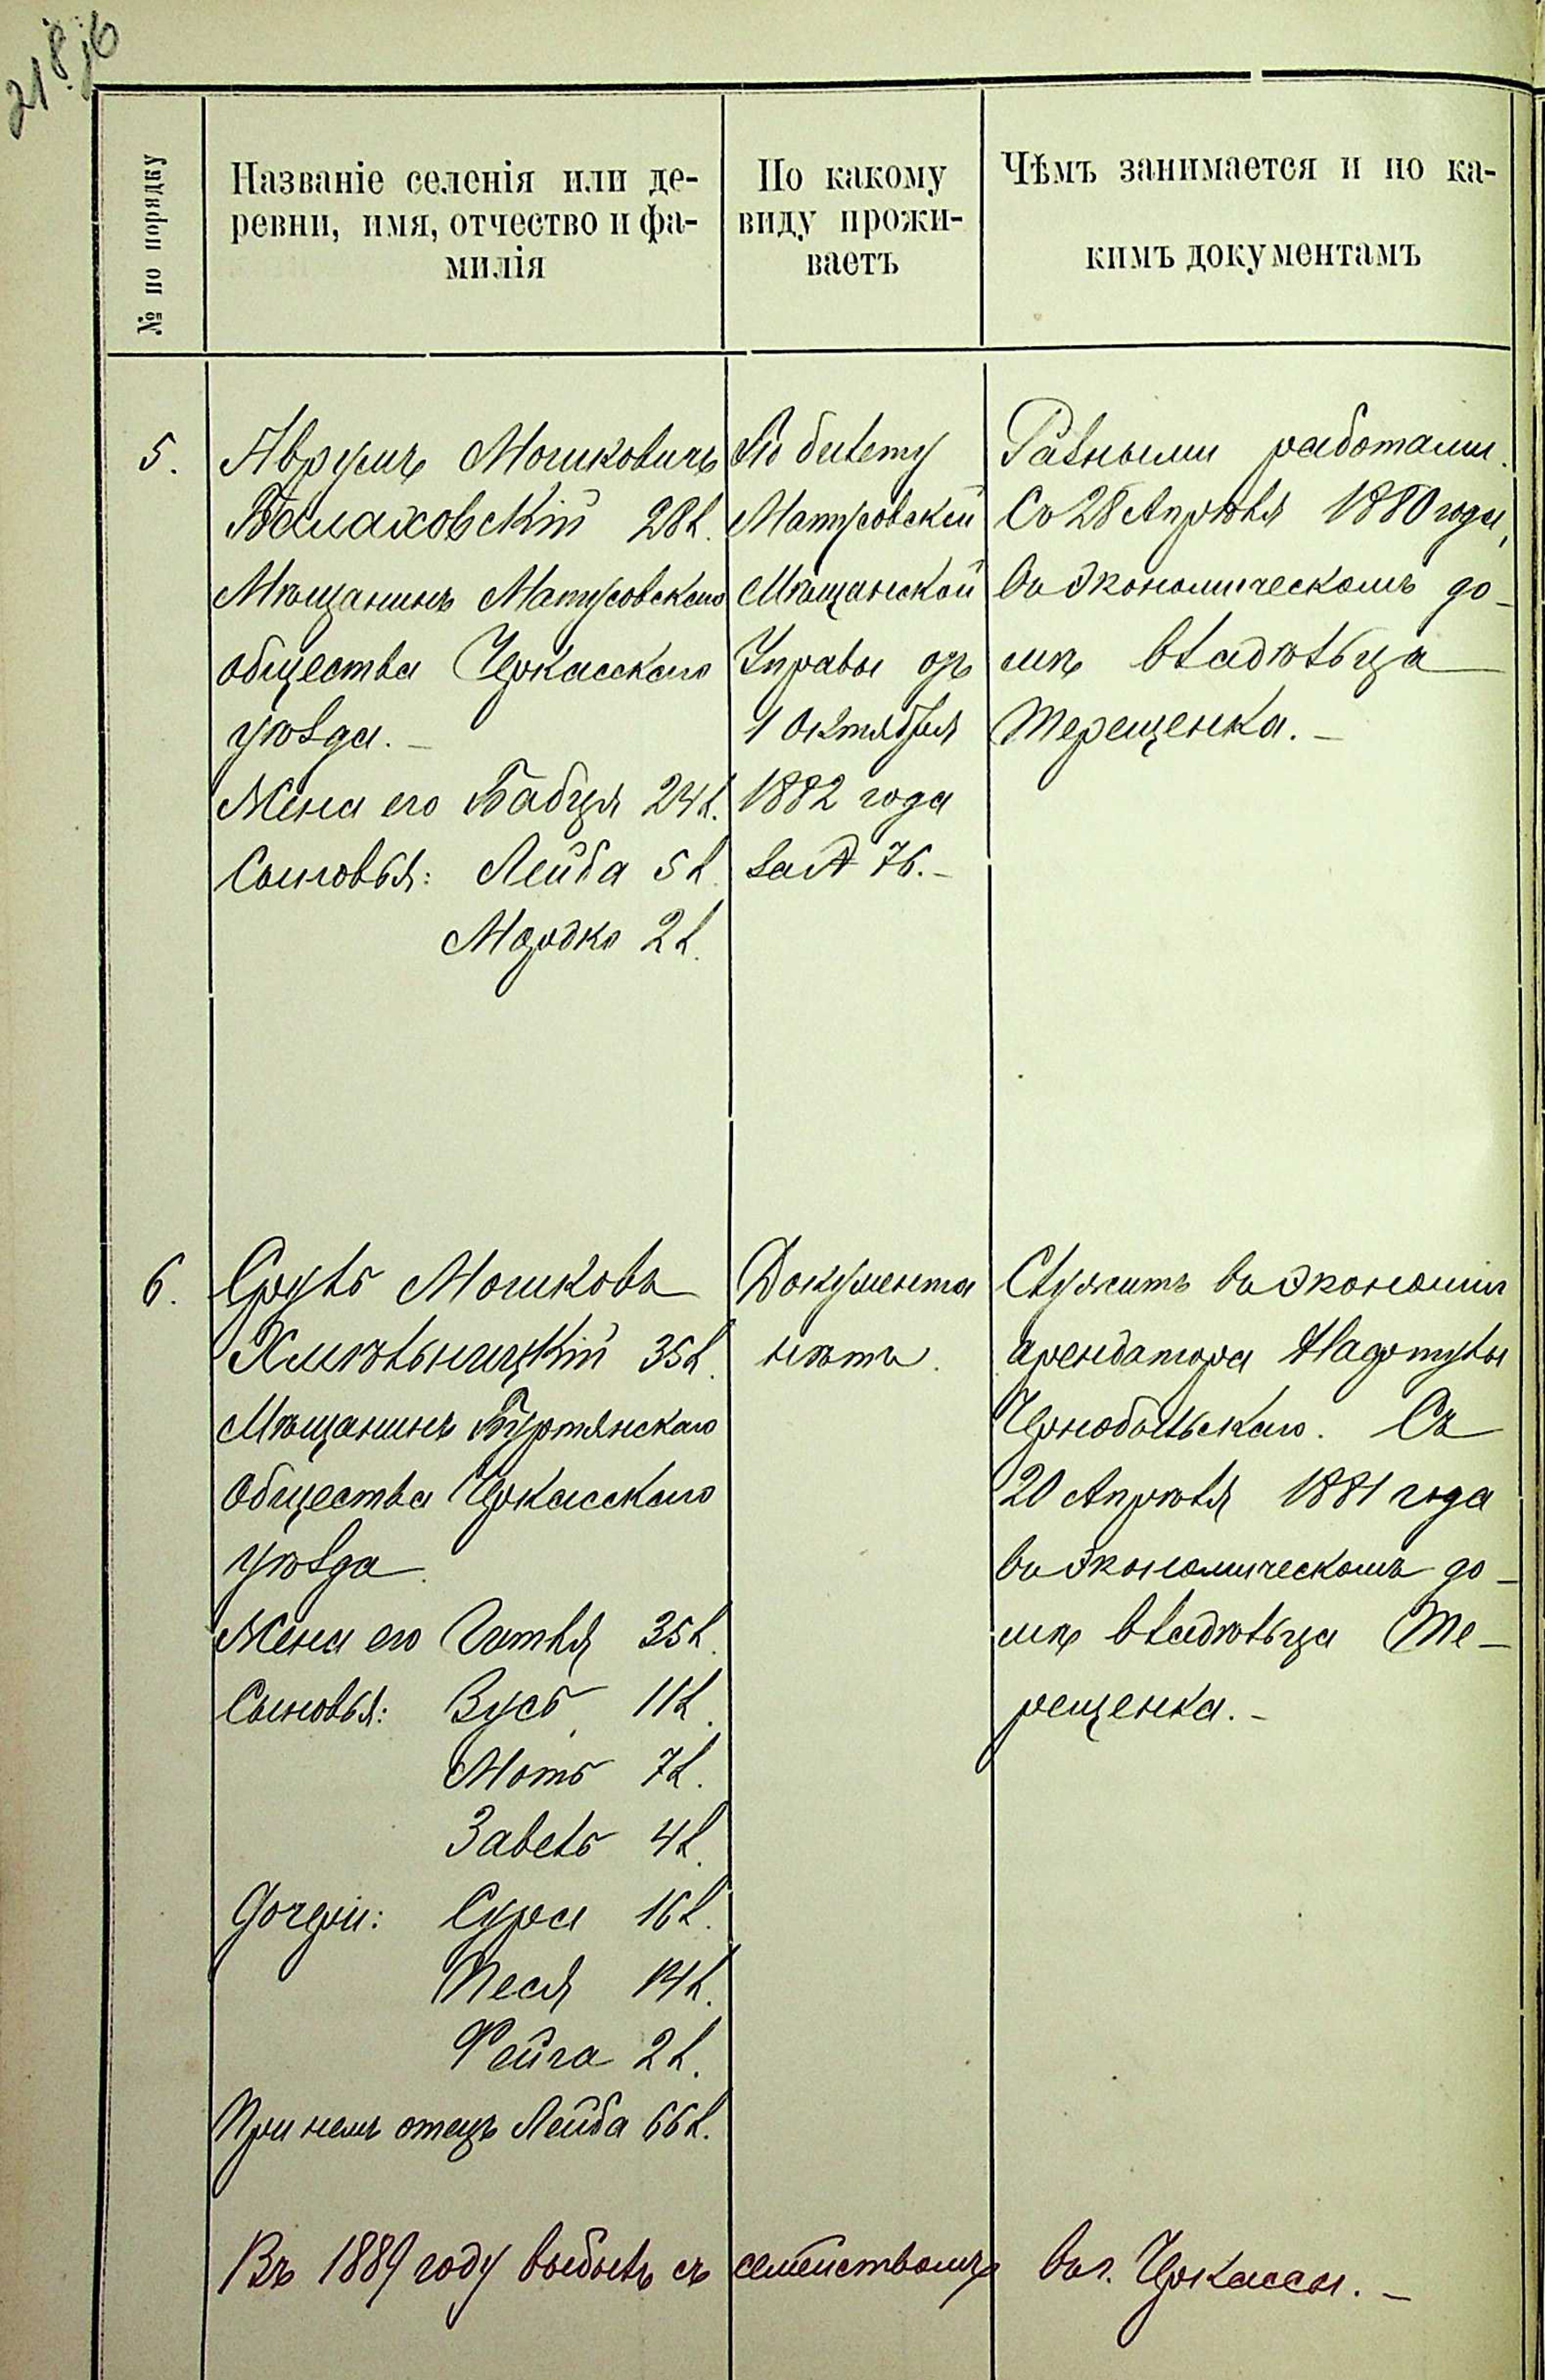 218 об
№ по порядку
Названіе селенія или де-
ревни, имя, отчество и фа-
милія
По какому
виду прожи-
ваетъ
Чѣмъ занимается и по ка-
кимъ документамъ
5.
Аврумъ Мошковичъ
Балаховскій 28 л.
Мѣщанинъ Матусовскаго
общества Черкасскаго
уѣзда. –
Жена его Бабця 24 л.
Сыновья: Лейба 5 л.
Мордко 2 л.
По билету
Матусовской
Мѣщанской
Управы отъ
1 Октября
1882 года
за № 76. –
Разными работами.
Съ 28 Апрѣля 1880 года,
въ экономическомъ до-
мѣ владѣльца
Терещенка. –
6.
Сруль Мошковъ
Хмѣльницкій 35 л.
Мѣщанинъ Буртянскаго
Общества Черкасскаго
уѣзда.
Жена его Гитля 35 л.
Сыновья: Зусь 11 л.
Моть 7 л.
Завель 4 л.
Дочери: Сура 16 л.
Песя 14 л.
Фейга 2 л.
При немъ отецъ Лейба 66 л.
Документа
нѣтъ.
Служитъ въ экономіи
арендатора
Чернобыльскаго. Съ
20 Апрѣля 1881 года
въ экономическомъ до-
мѣ владѣльца Те-
рещенка. –
Въ 1889 году выбылъ съ семействомъ въ г. Черкассы. –